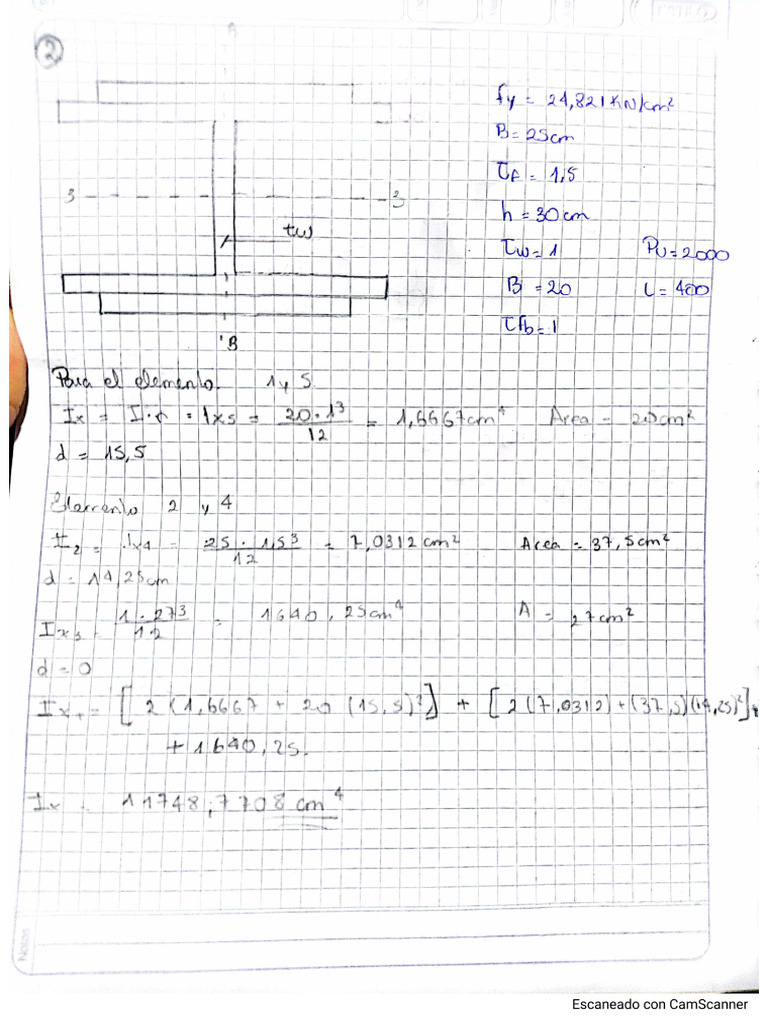 2
fy = 24,821 KN/cm²
B = 25cm
τf = 1,5
3 3
h = 30 cm
tw
τw = 1 Pu = 2000
B = 20 L = 400
τfb = 1
'B
Para el elemento. 1 y 5
Ix = = Ix5 = 20 · 1³ / 12 = 1,6667cm⁴ Area = 20cm²
d = 15,5
Elemento 2 y 4
I₂ = Ix4 = 25 · 1,5³ / 12 = 7,0312 cm² Area = 37,5cm²
d = 14,25cm
Ix3 = 1 · 27³ / 12 = 1640,25cm⁴ A = 27cm²
d = 0
IxT = [2 (1,6667 + 20 (15,5)²)] + [2(7,0312) + (37,5)(14,25)²]
+ 1640,25.
Ix = 11748,7708 cm⁴
Notas
Escaneado con CamScanner